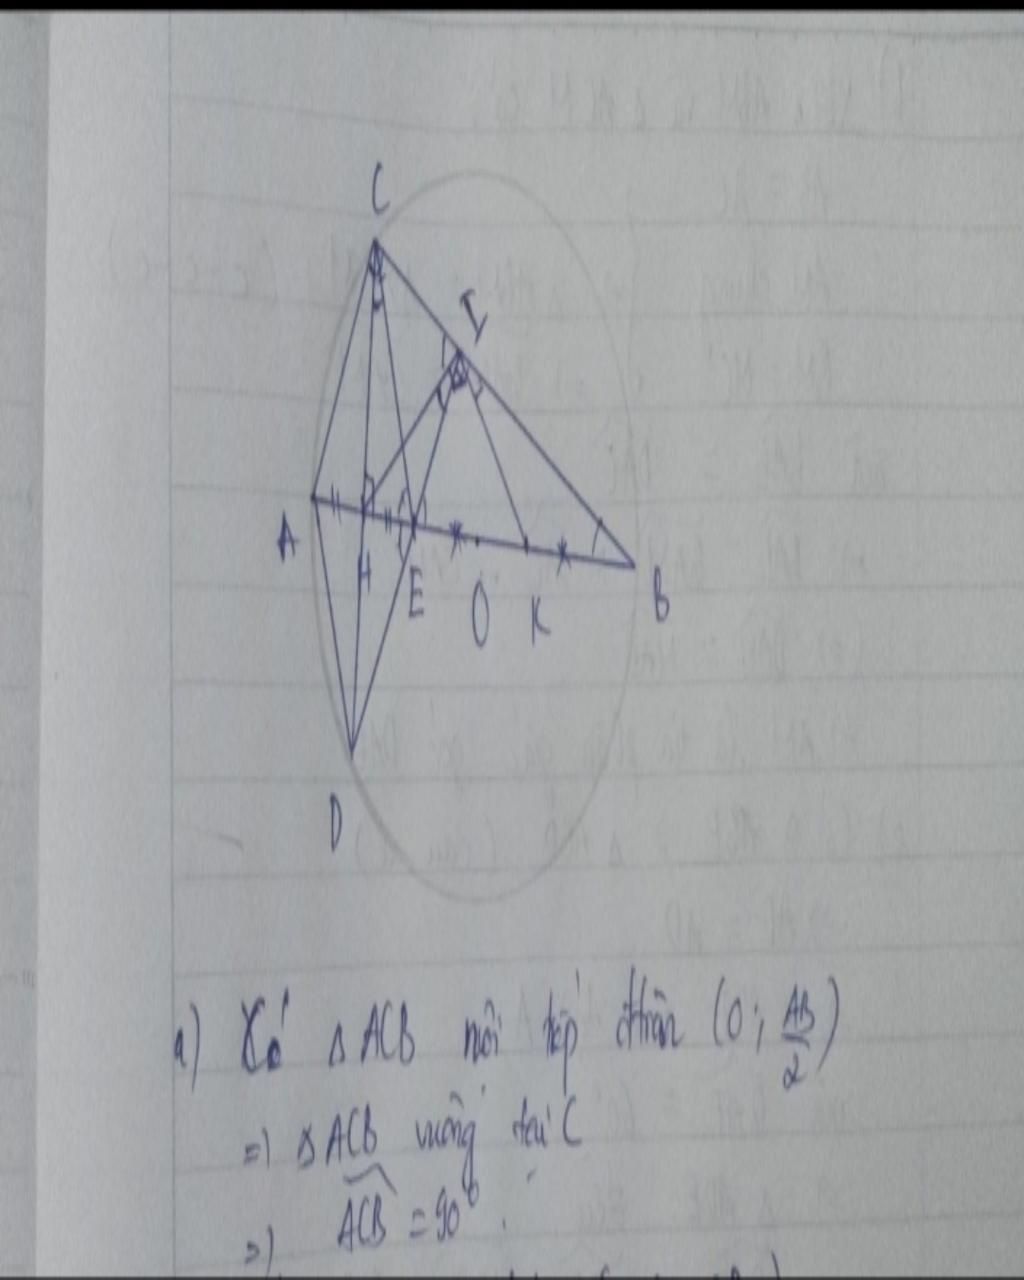 C
I
A
H
E
O
K
B
D
a) Xét Δ ACB nội tiếp đtròn (O; AB/2)
=> Δ ACB vuông tại C
=> ACB = 90°